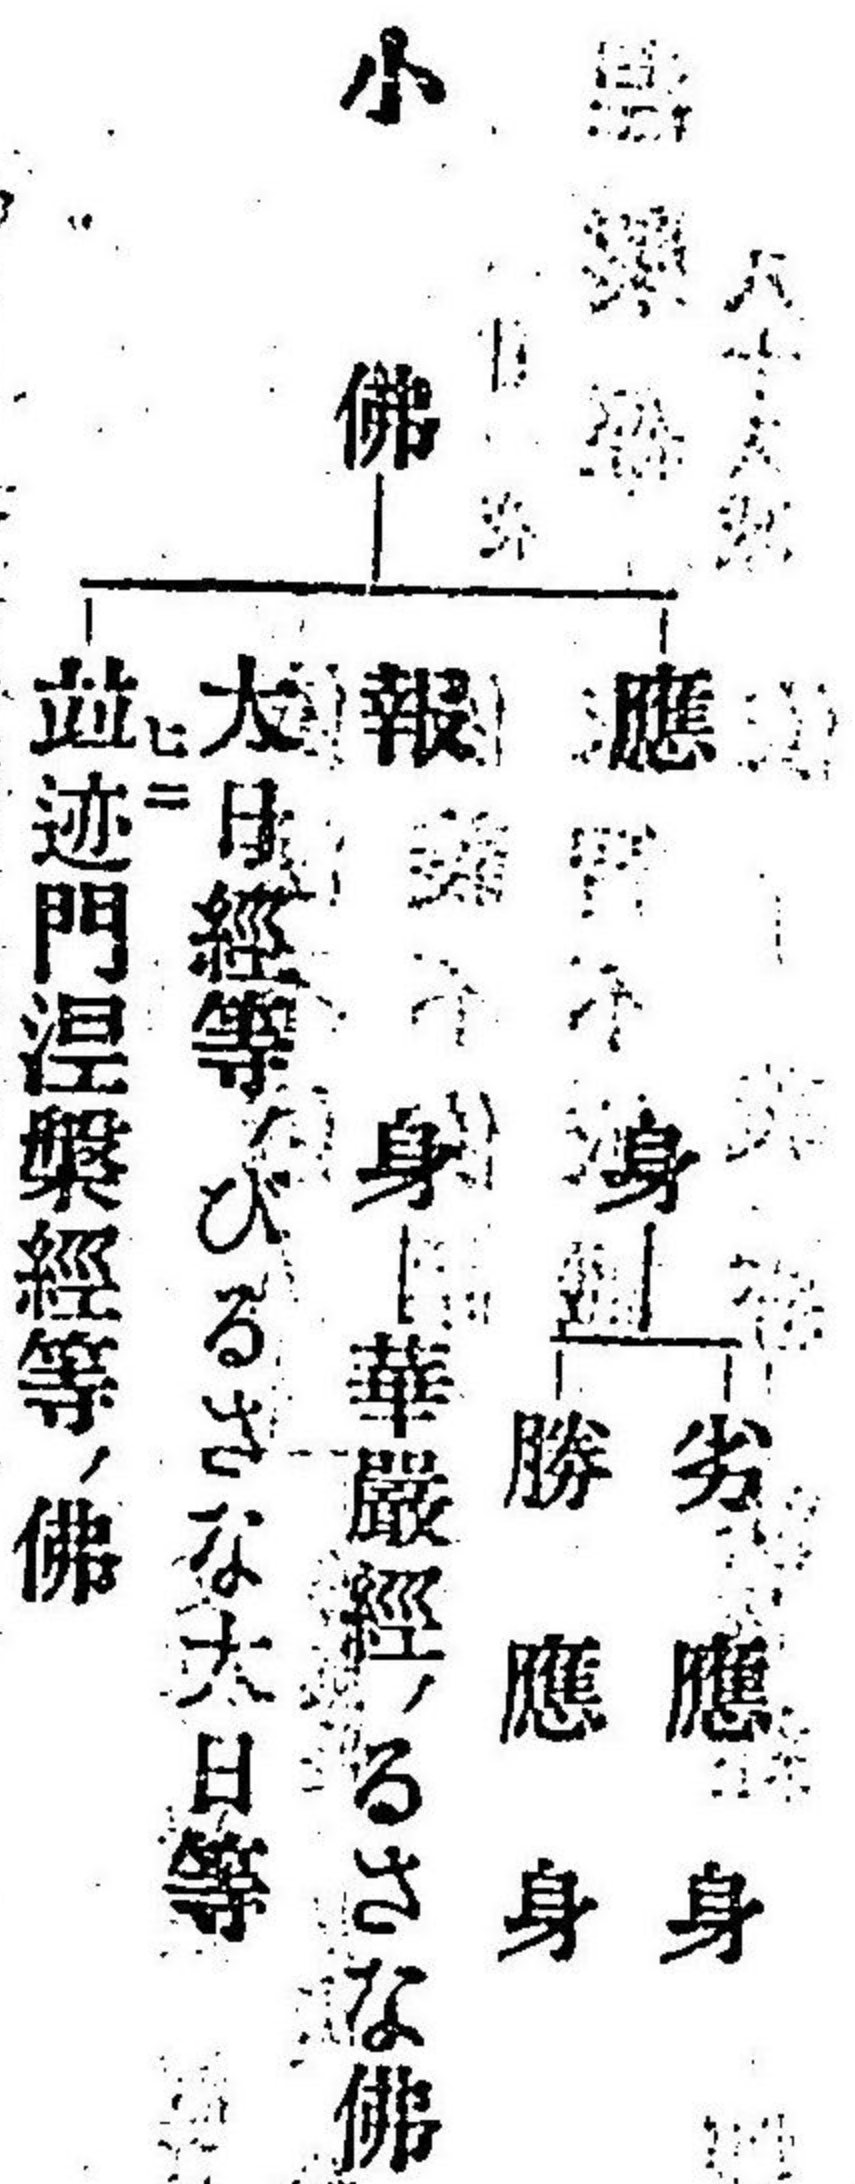 小佛
應身
劣應身
勝應身
報身
華嚴經ノるさな佛
大日經等ノびるさな大日等
並ヒニ迹門涅槃經等ノ佛